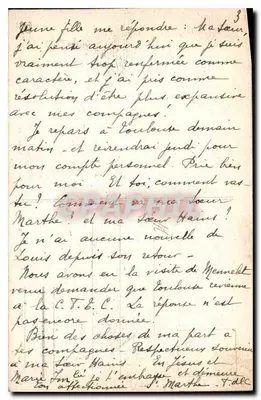 3
Jeune fille me répondre : Ma Sœur,
j'ai pensé aujourd'hui que je suis
vraiment trop renfermée comme
caractère, et j'ai pris comme
résolution d'être plus expansive
avec mes compagnes.
Je repars à Toulouse demain
matin - et reviendrai jeudi pour
mon compte personnel. Prie bien
pour moi. Et toi, comment vas-
tu ? Comment va ma Sœur
Marthe ? et ma Sœur
Je n'ai aucune nouvelle de
Louis depuis son retour -
Nous avons eu la visite de
venue demander que Toulouse revienne
à la C.T.C. La réponse n'est
pas encore donnée.
Bien des choses de ma part à
tes compagnes - Respectueux souvenir
à ma Sœur En Jésus et
Marie Im. je t'embrasse et demeure
ton affectionnée Sr Marthe